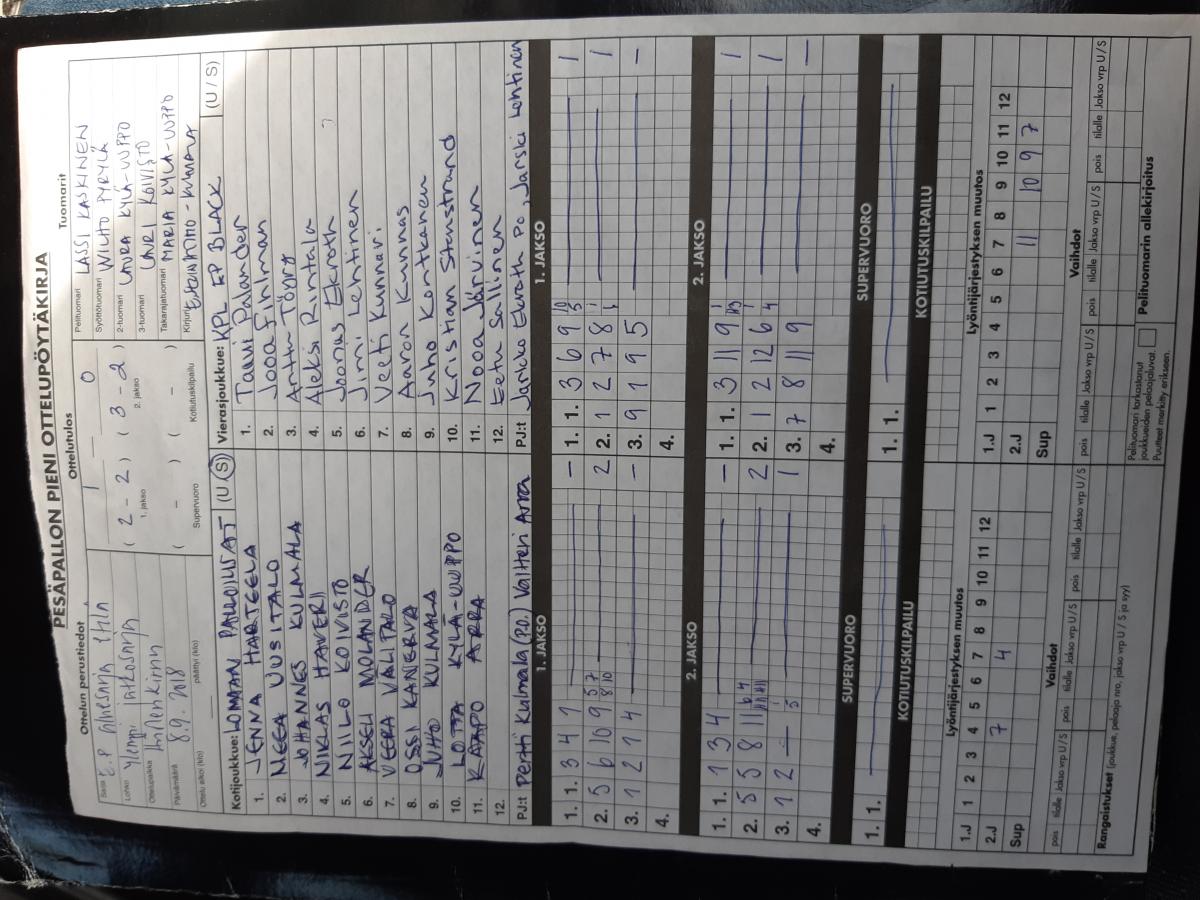 PESÄPALLON PIENI OTTELUPÖYTÄKIRJA
Ottelun perustiedot
Ottelutulos
Tuomarit
Sarja E.P
Lohko Ylempi jatkosarja
Ottelupaikka
Päivämäärä 8.9.2018
Ottelu alkoi (klo) päättyi (klo)
1 0
( 2 - 2 ) ( 3 - 2 )
1. jakso 2. jakso
( - ) ( - )
Supervuoro Kotiutuskilpailu
Pelituomari LASSI KASKINEN
Syöttötuomari WILHO PYRYLÄ
2-tuomari LAURA KYLÄ-UUPPO
3-tuomari LAURI KOIVISTO
Takarajatuomari MARIA KYLÄ-UUPPO
Kirjuri KUMALA
Kotijoukkue: ULOMAAN PALLOILIJAT (U / S)
1. JENNA HARTELA
2. NEEA UUSITALO
3. JOHANNES KULMALA
4. NIKLAS HAVERI
5. NIILO KOIVISTO
6. AKSELI MOLANDER
7. VEERA VALITALO
8. OSSI KANERVA
9. JUHO KULMALA
10. LOTTA KYLÄ-UUPPO
11. KAAPO ARRA
12.
PJ:t Pertti Kulmala (P.O.) Valtteri Arra
Vierasjoukkue: KPL EP BLACK (U / S)
1. Taavi Palander
2. Jooa Fihlman
3. Anttu Töyry
4. Aleksi Rintala
5. Joonas Ekroth
6. Jimi Lehtinen
7. Veeti Kunnari
8. Aaron Kunnas
9. Juho Kontkanen
10. Kristian Stenstrand
11. Nooa Järvinen
12. Eetu Sallinen
PJ:t Jarkko Ekroth Po, Jarski Lahtinen
1. JAKSO
1. 1. 3 4 7 —
2. 5 6 10 9 5 7 8 10 2
3. 1 2 1 4 —
4.
1. JAKSO
1. 1. 3 6 9 1
2. 1 2 7 8 1
3. 9 1 9 5 —
4.
2. JAKSO
1. 1. 1 3 4 —
2. 5 5 8 11 2
3. 1 2 — 1
4.
2. JAKSO
1. 1. 3 11 9 1
2. 1 2 12 6 4 1
3. 7 8 11 9 —
4.
SUPERVUORO
1. 1.
SUPERVUORO
1. 1.
KOTIUTUSKILPAILU
KOTIUTUSKILPAILU
1.J 1 2 3 4 5 6 7 8 9 10 11 12
2.J 7 4
Sup
Lyöntijärjestyksen muutos
1.J 1 2 3 4 5 6 7 8 9 10 11 12
2.J 11 10 9 7
Sup
Lyöntijärjestyksen muutos
Vaihdot
pois tilalle Jakso vrp U / S pois tilalle Jakso vrp U / S pois tilalle Jakso vrp U / S
Vaihdot
pois tilalle Jakso vrp U / S pois tilalle Jakso vrp U / S pois tilalle Jakso vrp U / S
Rangaistukset (joukkue, pelaaja nro, jakso vrp U / S ja syy)
Pelituomari tarkastanut
joukkueiden pelaajaluvat.
Puutteet merkitty erikseen.
Pelituomarin allekirjoitus